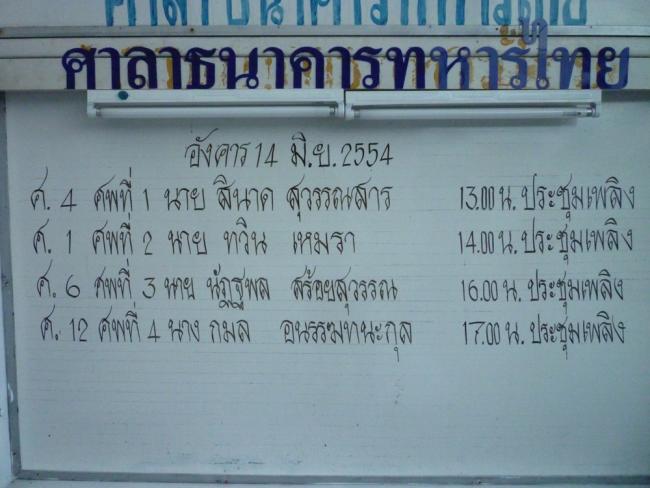 ศาลาธนาคารทหารไทย
ศาลาธนาคารทหารไทย
อังคาร 14 มิ.ย. 2554
ศ. 4 ศพที่ 1 นาย สินาด สุวรรณสาร 13.00 น. ประชุมเพลิง
ศ. 1 ศพที่ 2 นาย ทวิน เหมรา 14.00 น. ประชุมเพลิง
ศ. 6 ศพที่ 3 นาย นัฏฐพล สร้อยสุวรรณ 16.00 น. ประชุมเพลิง
ศ. 12 ศพที่ 4 นาง กมล 17.00 น. ประชุมเพลิง